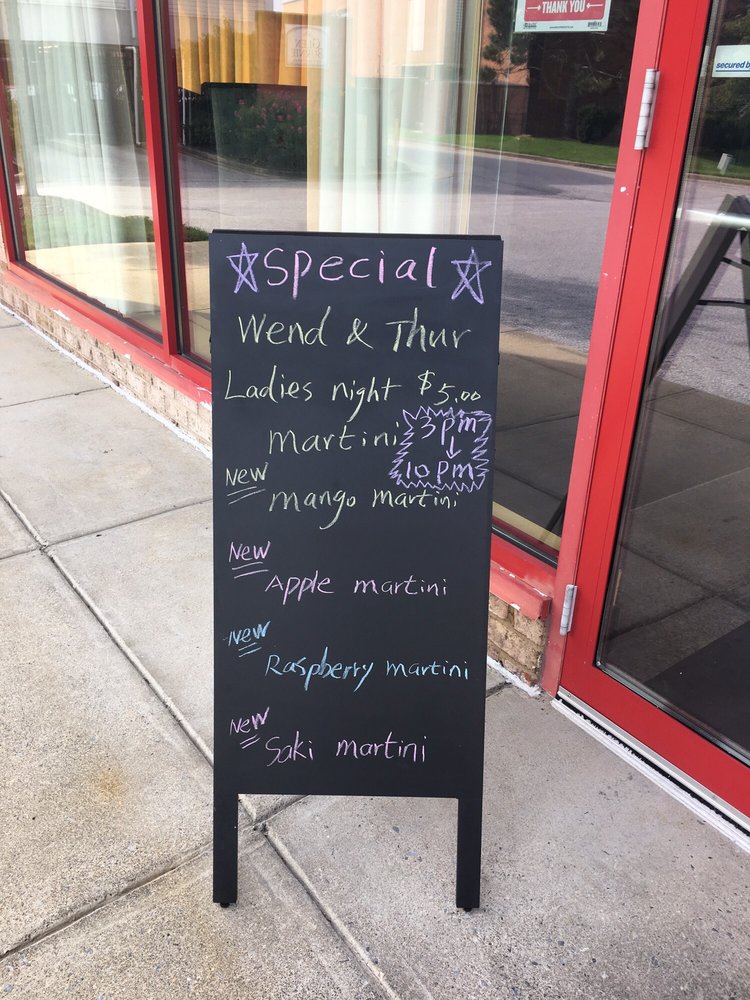 THANK YOU
secured b
Special
Wend & Thur
Ladies night $5.00
martini
3pm
↓
10pm
New
mango martini
New
Apple martini
New
Raspberry martini
New
Saki martini